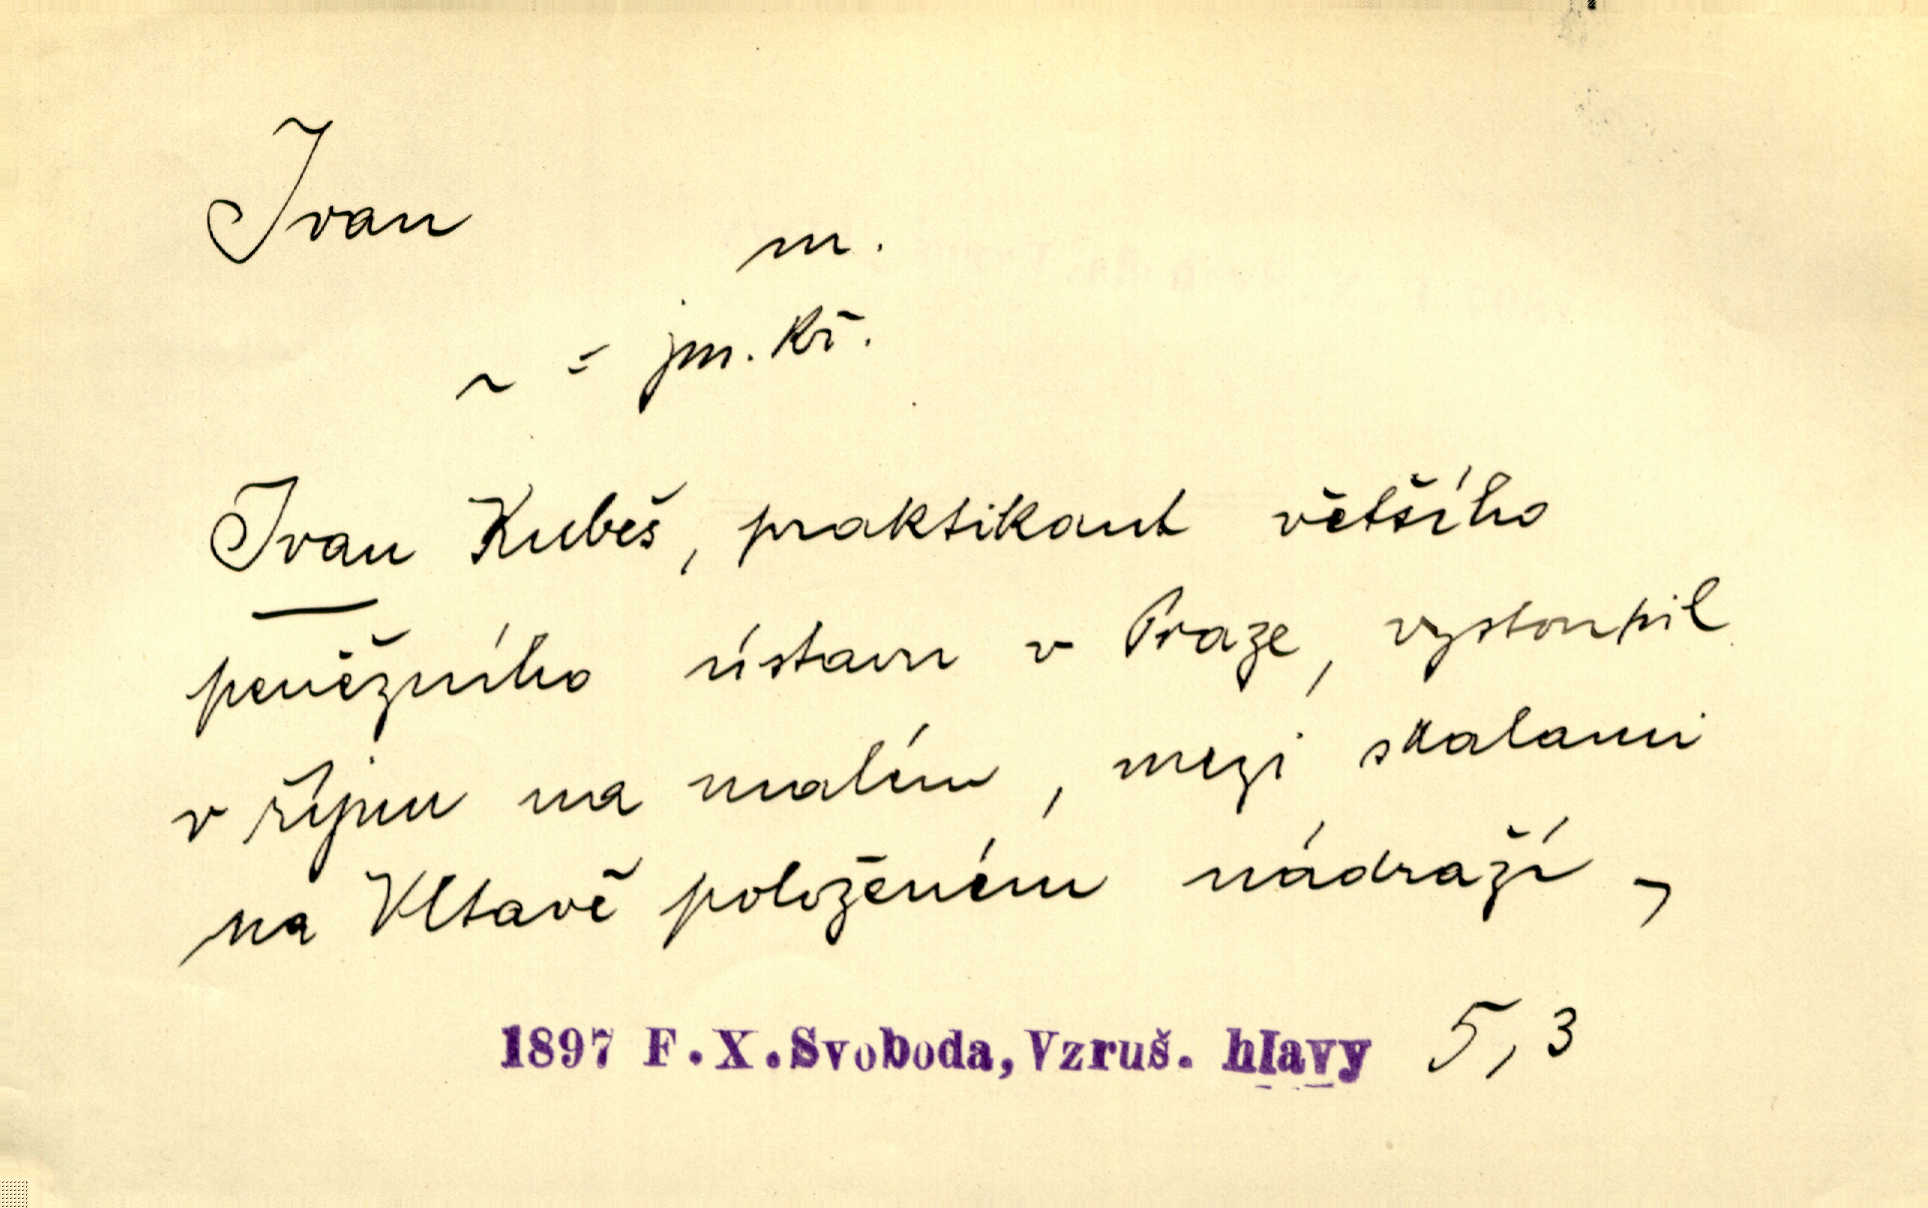 Ivan
m.
~ = jm. kř.
Ivan Kubeš, praktikant většího
peněžního ústavu v Praze, vystoupil
v říjnu na malém, mezi skalami
na Vltavě položeném nádraží,
1897 F. X. Svoboda, Vzruš. hlavy 5, 3